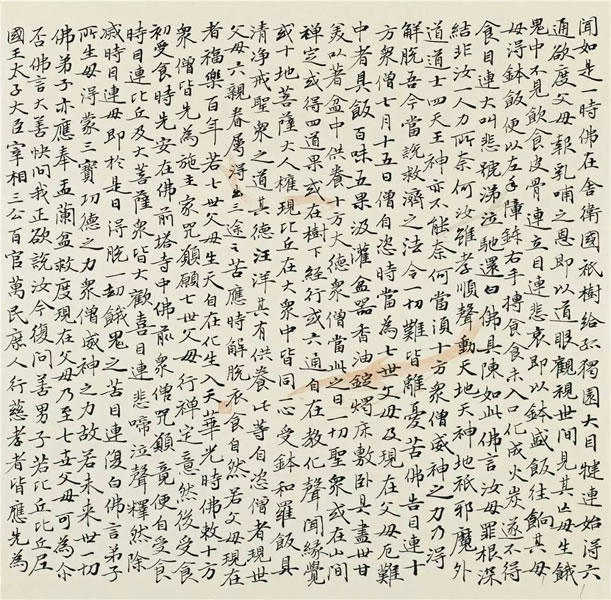 聞如是一時佛在舍衛國祇樹給孤獨園大目犍連始得六
通欲度父母報乳哺之恩即以道眼觀視世間見其亡母生餓
鬼中不見飲食皮骨連立目連悲哀即以鉢盛飯往餉其母
母得鉢飯便以左手障鉢右手摶食食未入口化成火炭遂不得
食目連大叫悲號涕泣馳還白佛具陳如此佛言汝母罪根深
結非汝一人力所奈何汝雖孝順聲動天地天神地祇邪魔外
道道士四天王神亦不能奈何當須十方衆僧威神之力乃得
解脫吾今當說救濟之法令一切難皆離憂苦佛告目連十
方衆僧七月十五日僧自恣時當為七世父母及現在父母厄難
中者具飯百味五果汲灌盆器香油錠燭床敷臥具盡世甘
美以著盆中供養十方大德衆僧當此之日切聖衆或在山間
禪定或得四道果或在樹下經行或六通自在教化聲聞緣覺
或十地菩薩大人權現比丘在大衆中皆同心受鉢和羅飯具
清淨戒聖衆之道其德汪洋其有供養此等自恣僧者現世
父母六親眷屬得出三途之苦應時解脫衣食自然若父母現在
者福樂百年若七世父母生天自在化生入天華光時佛敕十方
衆僧皆先為施主家咒願願七世父母行禪定意然後受食
初受食時先安在佛前塔寺中佛前衆僧咒願竟便自受食
時目連比丘及大菩薩衆皆大歡喜目連悲啼泣聲釋然除
滅時目連母即於是日得脫一劫餓鬼之苦目連復白佛言弟子
所生母得蒙三寶功德之力衆僧威神之力故若未來世一切
佛弟子亦應奉盂蘭盆救度現在父母乃至七世父母可為尒
否佛言大善快問我正欲說汝今復問善男子若比丘比丘尼
國王太子大臣宰相三公百官萬民庶人行慈孝者皆應先為